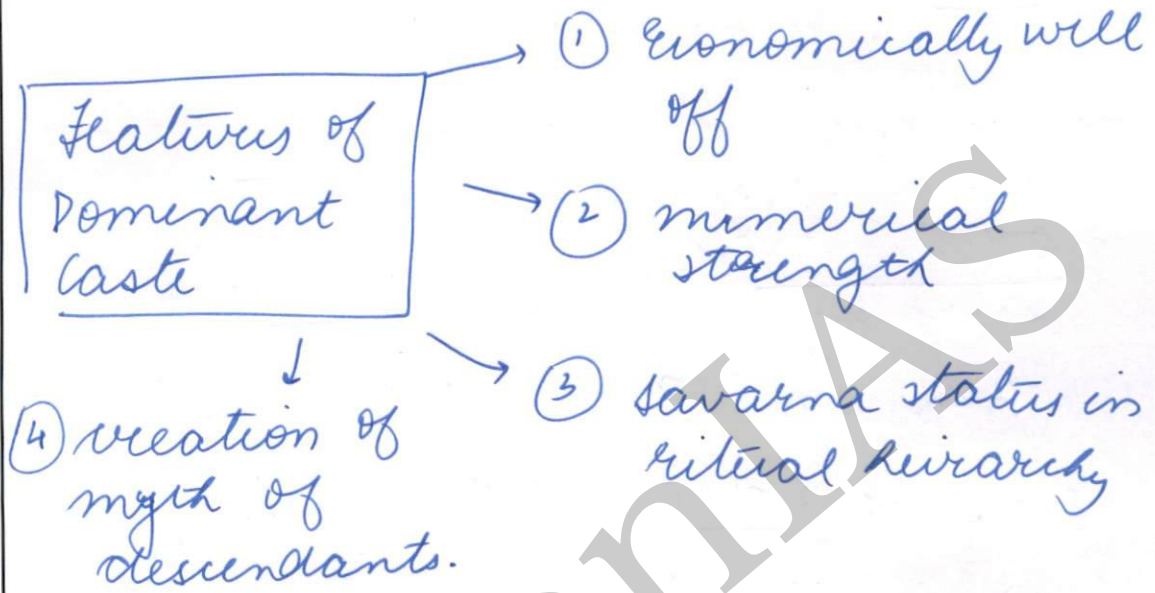 Features of
Dominant
Caste
① Economically well
off
② numerical
strength
③ savarna status in
ritual heirarchy
④ creation of
myth of
descendants.
nIAS